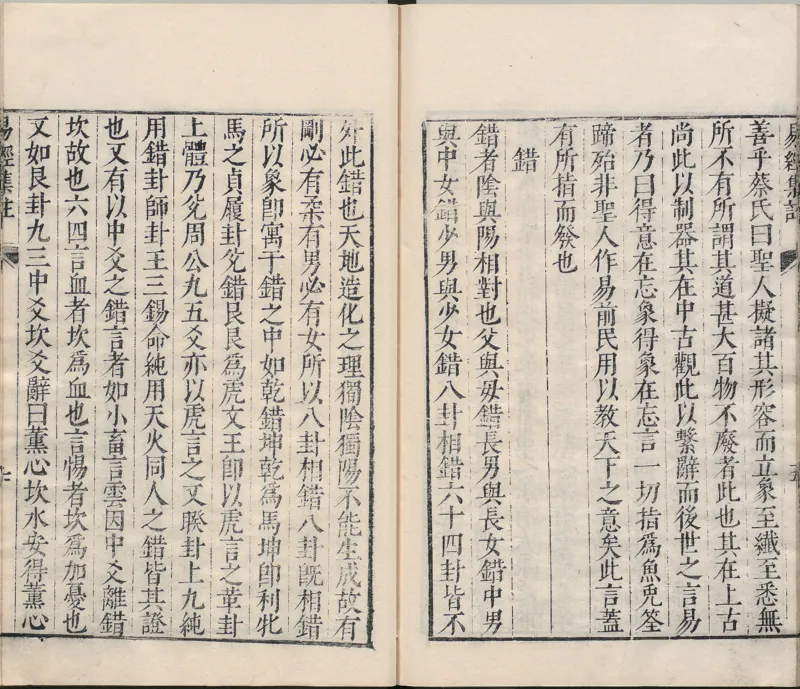 易經集註
善乎蔡氏曰聖人擬諸其形容而立象至纖至悉無
所不有所謂其道甚大百物不廢者此也其在上古
尚此以制器其在中古觀此以繫辭而後世之言易
者乃曰得意在忘象得象在忘言一切指爲魚兎筌
蹄殆非聖人作易前民用以教天下之意矣此言蓋
有所指而發也
錯
錯者陰與陽相對也父與母錯長男與長女錯中男
與中女錯少男與少女錯八卦相錯六十四卦皆不
外此錯也天地造化之理獨陰獨陽不能生成故有
剛必有柔有男必有女所以八卦相錯八卦旣相錯
所以象卽寓于錯之中如乾錯坤乾爲馬坤卽利牝
馬之貞履卦兊錯艮艮爲虎文王卽以虎言之革卦
上體乃兊周公九五爻亦以虎言之又睽卦上九純
用錯卦師卦王三錫命純用天火同人之錯皆其證
也又有以中爻之錯言者如小畜言雲因中爻離錯
坎故也六四言血者坎爲血也言惕者坎爲加憂也
又如艮卦九三中爻坎爻辭曰薰心坎水安得薰心
易經集註